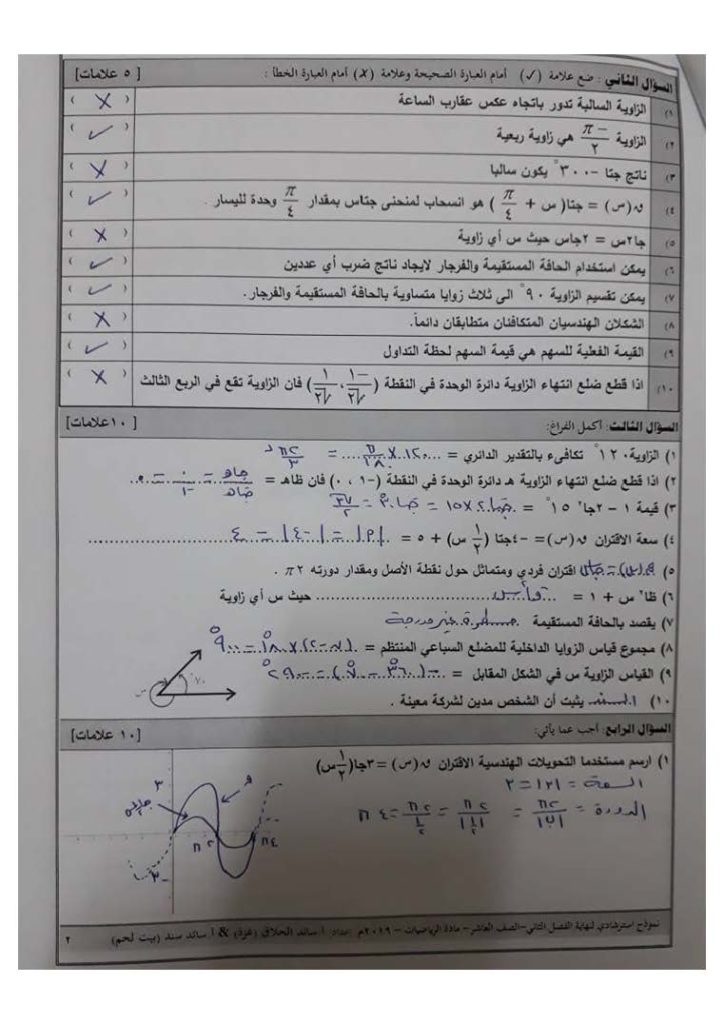 السؤال الثاني : ضع علامة (✓) أمام العبارة الصحيحة وعلامة (✗) أمام العبارة الخطأ : [ ٥ علامات]
١) الزاوية السالبة تدور باتجاه عكس عقارب الساعة ( ✗ )
٢) الزاوية -π/٢ هي زاوية ربعية ( ✓ )
٣) ناتج جتا -٣٠٠° يكون سالبا ( ✗ )
٤) ق(س) = جتا( س + π/٤ ) هو انسحاب لمنحنى جتاس بمقدار π/٤ وحدة لليسار . ( ✓ )
٥) جا٢س = ٢جاس حيث س أي زاوية ( ✗ )
٦) يمكن استخدام الحافة المستقيمة والفرجار لايجاد ناتج ضرب أي عددين ( ✓ )
٧) يمكن تقسيم الزاوية ٩٠° الى ثلاث زوايا متساوية بالحافة المستقيمة والفرجار. ( ✓ )
٨) الشكلان الهندسيان المتكافئان متطابقان دائماً. ( ✗ )
٩) القيمة الفعلية للسهم هي قيمة السهم لحظة التداول ( ✓ )
١٠) اذا قطع ضلع انتهاء الزاوية دائرة الوحدة في النقطة (-١/√٢ ، ١/√٢) فان الزاوية تقع في الربع الثالث ( ✗ )
السؤال الثالث: أكمل الفراغ: [١٠ علامات]
١) الزاوية ١٢٠° تكافىء بالتقدير الدائري = ١٢٠ × π/١٨٠ = ٢π/٣
٢) اذا قطع ضلع انتهاء الزاوية هـ دائرة الوحدة في النقطة (-١ ، ٠) فان ظاهـ = جاهـ/جتاهـ = ٠/-١ = ٠
٣) قيمة ١ - ٢جا² ١٥° = جتا ٢ × ١٥ = جتا ٣٠° = √٣/٢
٤) سعة الاقتران ق(س)= -٤جتا (١/٢ س) + ٥ = |أ| = |-٤| = ٤
٥) ق(س) = جاس اقتران فردي ومتماثل حول نقطة الأصل ومقدار دورته ٢π .
٦) ظا² س + ١ = قا² س حيث س أي زاوية
٧) يقصد بالحافة المستقيمة مسطرة غير مدرجة
٨) مجموع قياس الزوايا الداخلية للمضلع السباعي المنتظم = (٧-٢) × ١٨٠° = ٩٠٠°
٩) القياس الزاوية س في الشكل المقابل = -(٣٦٠° - ٧٠°) = -٢٩٠°
٧٠
س
١٠) السند يثبت أن الشخص مدين لشركة معينة .
السؤال الرابع: أجب عما يأتي: [١٠ علامات]
١) ارسم مستخدما التحويلات الهندسية الاقتران ق(س) = ٣جا(١/٢ س)
السعة = |٢| = ٢
الدورة = ٢π/|ب| = ٢π/|١/٢| = ٢π/١/٢ = ٤π
٣
-٣
٢π
٤π
نموذج استرشادي لنهاية الفصل الثاني-الصف العاشر- مادة الرياضيات - ٢٠١٩م إعداد: أ.سائد الحلاق (غزة) & أ.سائد سند (بيت لحم) ٢